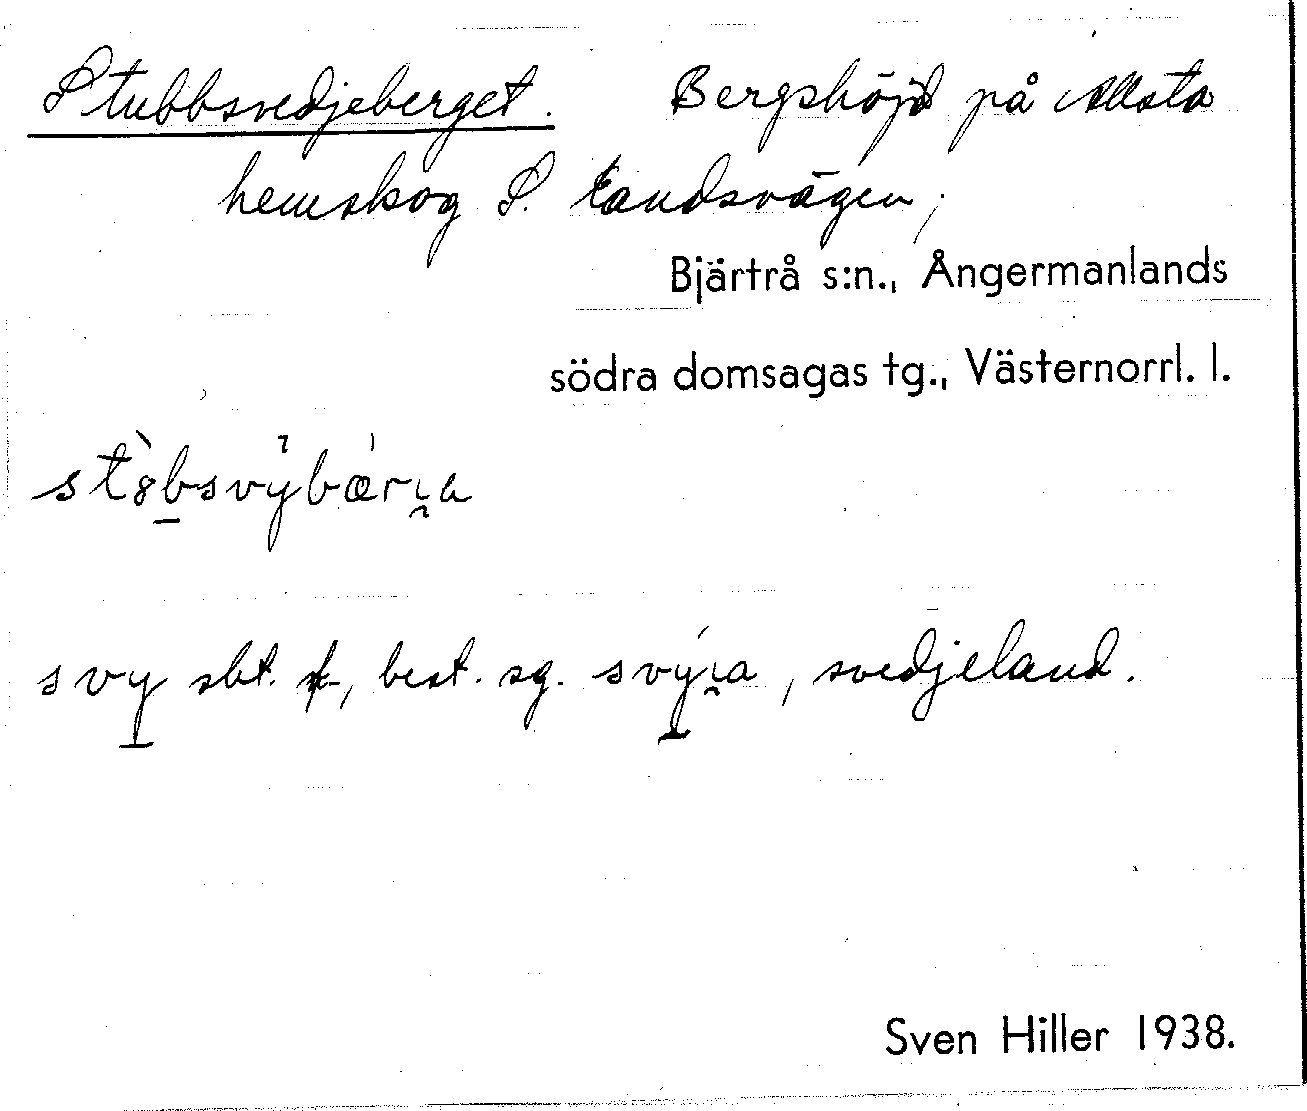 Stubbsvedjeberget. Bergshöjd på Allsta
hemskog S. landsvägen,
Bjärtrå s:n., Ångermanlands
södra domsagas tg., Västernorrl. l.
svy sbt. f., best. sg. , svedjeland.
Sven Hiller 1938.